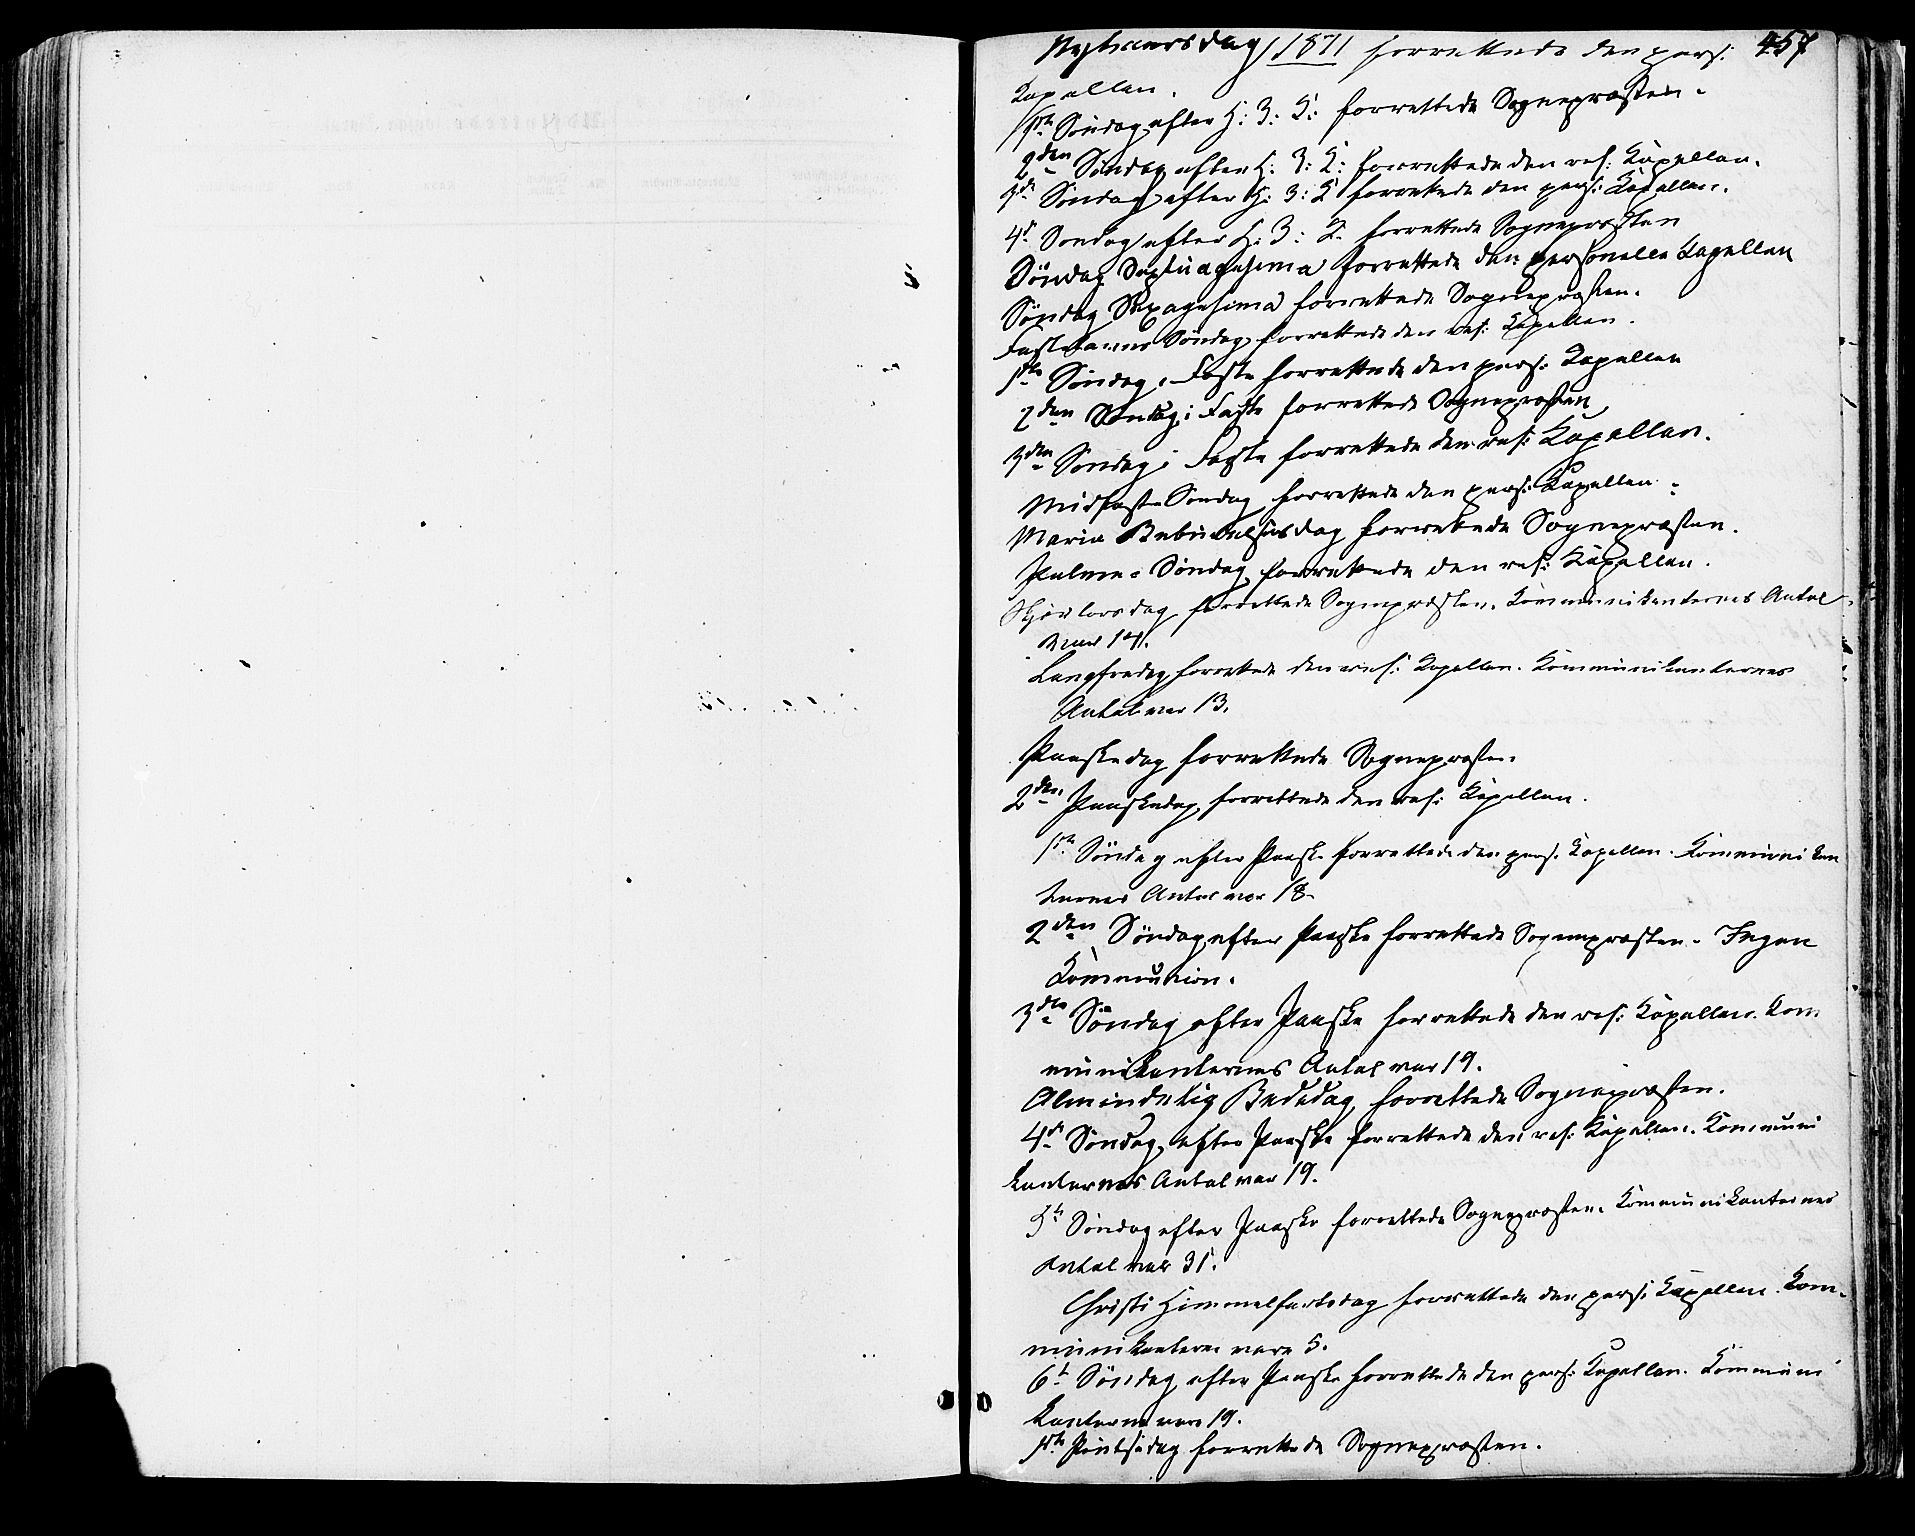 Nytaarsdag 1871 forrettede den pers: 457
Kapellan.
1ste Søndag efter H: 3: K: forrettede Sognepræsten.
2den Søndag efter H: 3: K: forrettede den res: Kapellan.
3die Søndag efter H: 3: K forrettede den pers: Kapellan.
4de Søndag efter H: 3: K. forrettede Sognepræsten
Søndag Septuagesima forrettede den personelle Kapellan
Søndag Sexagesima forrettede Sognepræsten.
Fastelavns Søndag forrettede den res: Kapellan.
1ste Søndag i Faste forrettede den pers: Kapellan
2den Søndag i Faste forrettede Sognepræsten
3die Søndag i Faste forrettede den res: Kapellan.
Midfaste Søndag forrettede den pers: Kapellan.
Maria Bebudelsesdag forrettede Sognepræsten.
Palme-Søndag forrettede den res: Kapellan.
Skjærtorsdag forrettede Sognepræsten. Kommunikanternes Antal
var 14.
Langfredag forrettede den res: Kapellan. Kommunikanternes
Antal var 13.
Paaskedag forrettede Sognepræsten.
2den Paaskedag forrettede den res: Kapellan.
1ste Søndag efter Paaske forrettede den pers. Kapellan. Kommunikan
ternes Antal var 18.
2den Søndag efter Paaske forrettede Sognepræsten. Ingen
Kommunion.
3die Søndag efter Paaske forrettede den res: Kapellan. Kom
munikanternes Antal var 19.
Almindelig Bededag forrettede Sognepræsten.
4de Søndag efter Paaske forrettede den res: Kapellan. Kommuni
kanternes Antal var 19.
5te Søndag efter Paaske forrettede Sognepræsten. Kommunikanternes
Antal var 31.
Christi Himmelfartsdag forrettede den pers: Kapellan. Kom-
munikanterne vare 5.
6te Søndag efter Paaske forrettede den pers: Kapellan. Kommuni
kanterne vare 19.
1ste Pintsedag forrettede Sognepræsten.